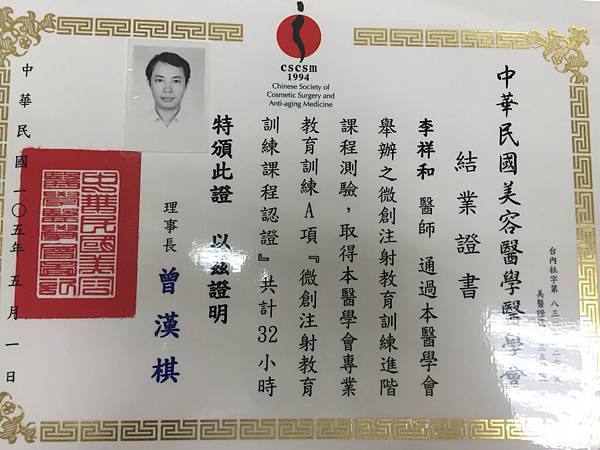 cscsm
1994
Chinese Society of
Cosmetic Surgery and
Anti-aging Medicine
中華民國美容醫學醫學會
結業證書
台內社字第 八三
美醫證
李祥和 醫師 通過本醫學會
舉辦之微創注射教育訓練進階
課程測驗，取得本醫學會專業
教育訓練A項『微創注射教育
訓練課程認證』共計32小時
特頒此證 以茲證明
理事長 曾漢棋
中華民國一〇五年五月一日